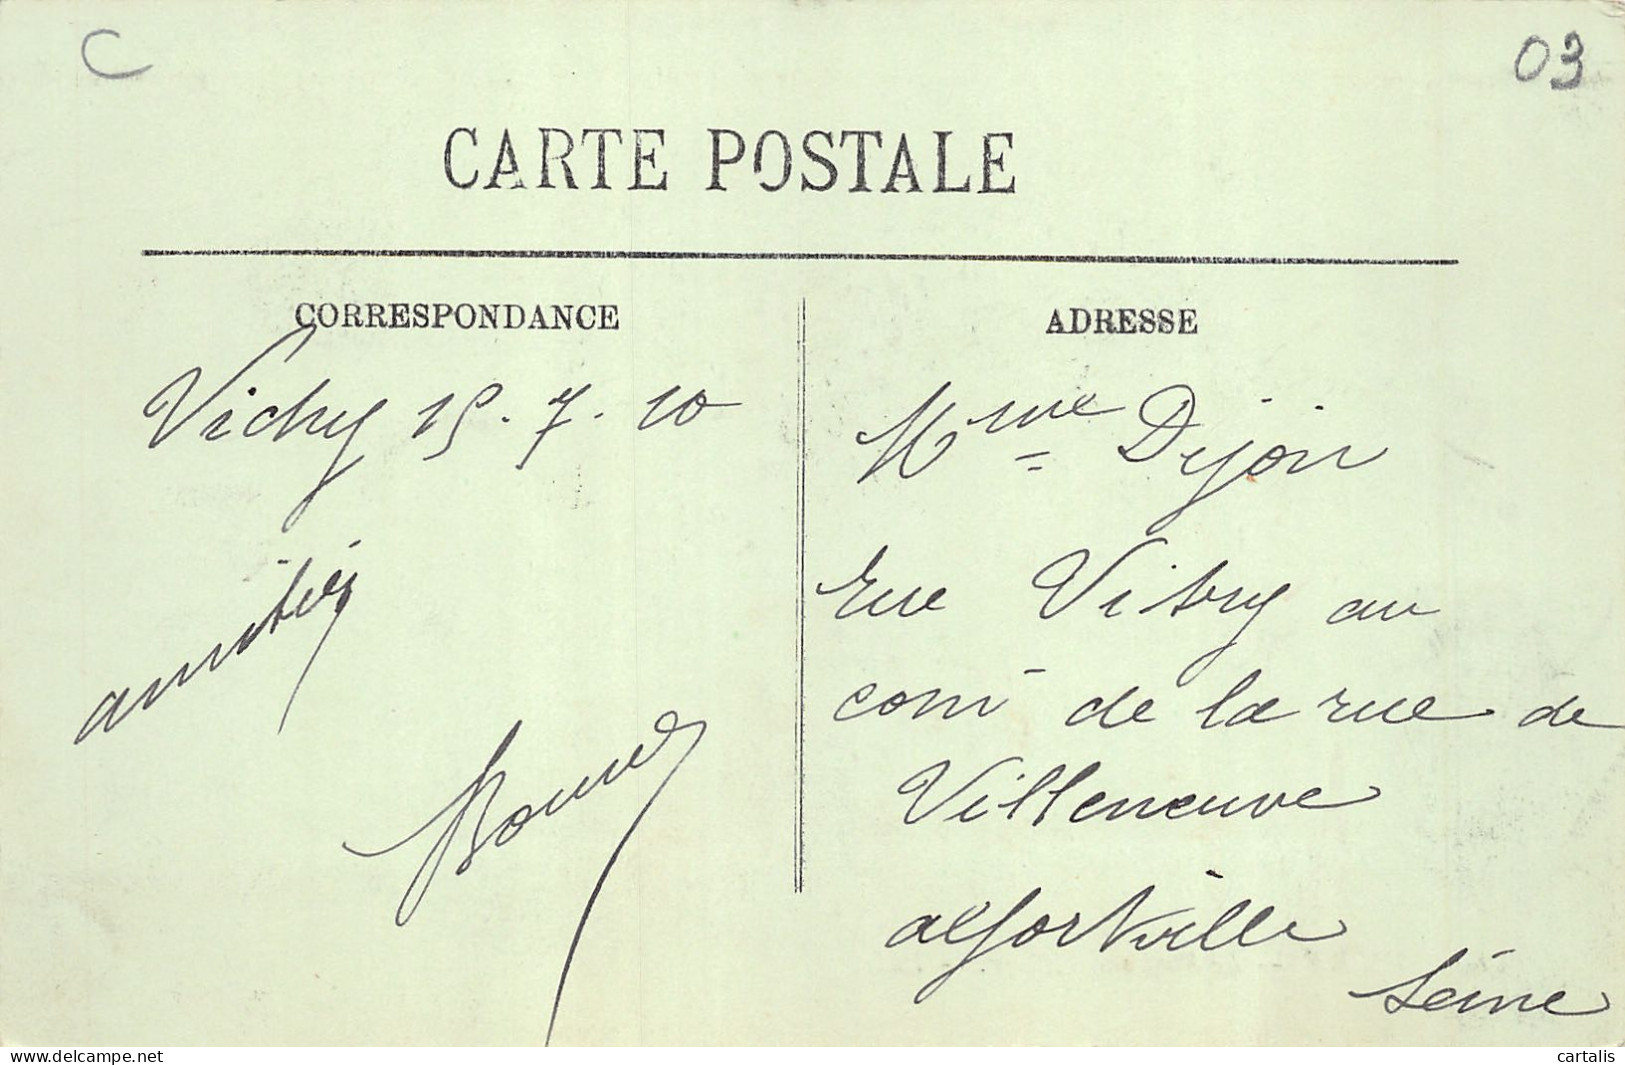 C
03
CARTE POSTALE
CORRESPONDANCE
Vichy 15.7.10
amitiés
ADRESSE
Mme Dijon
Rue Vitry au
coin de la rue de
Villeneuve
alfortville
Seine
www.delcampe.net
cartalis